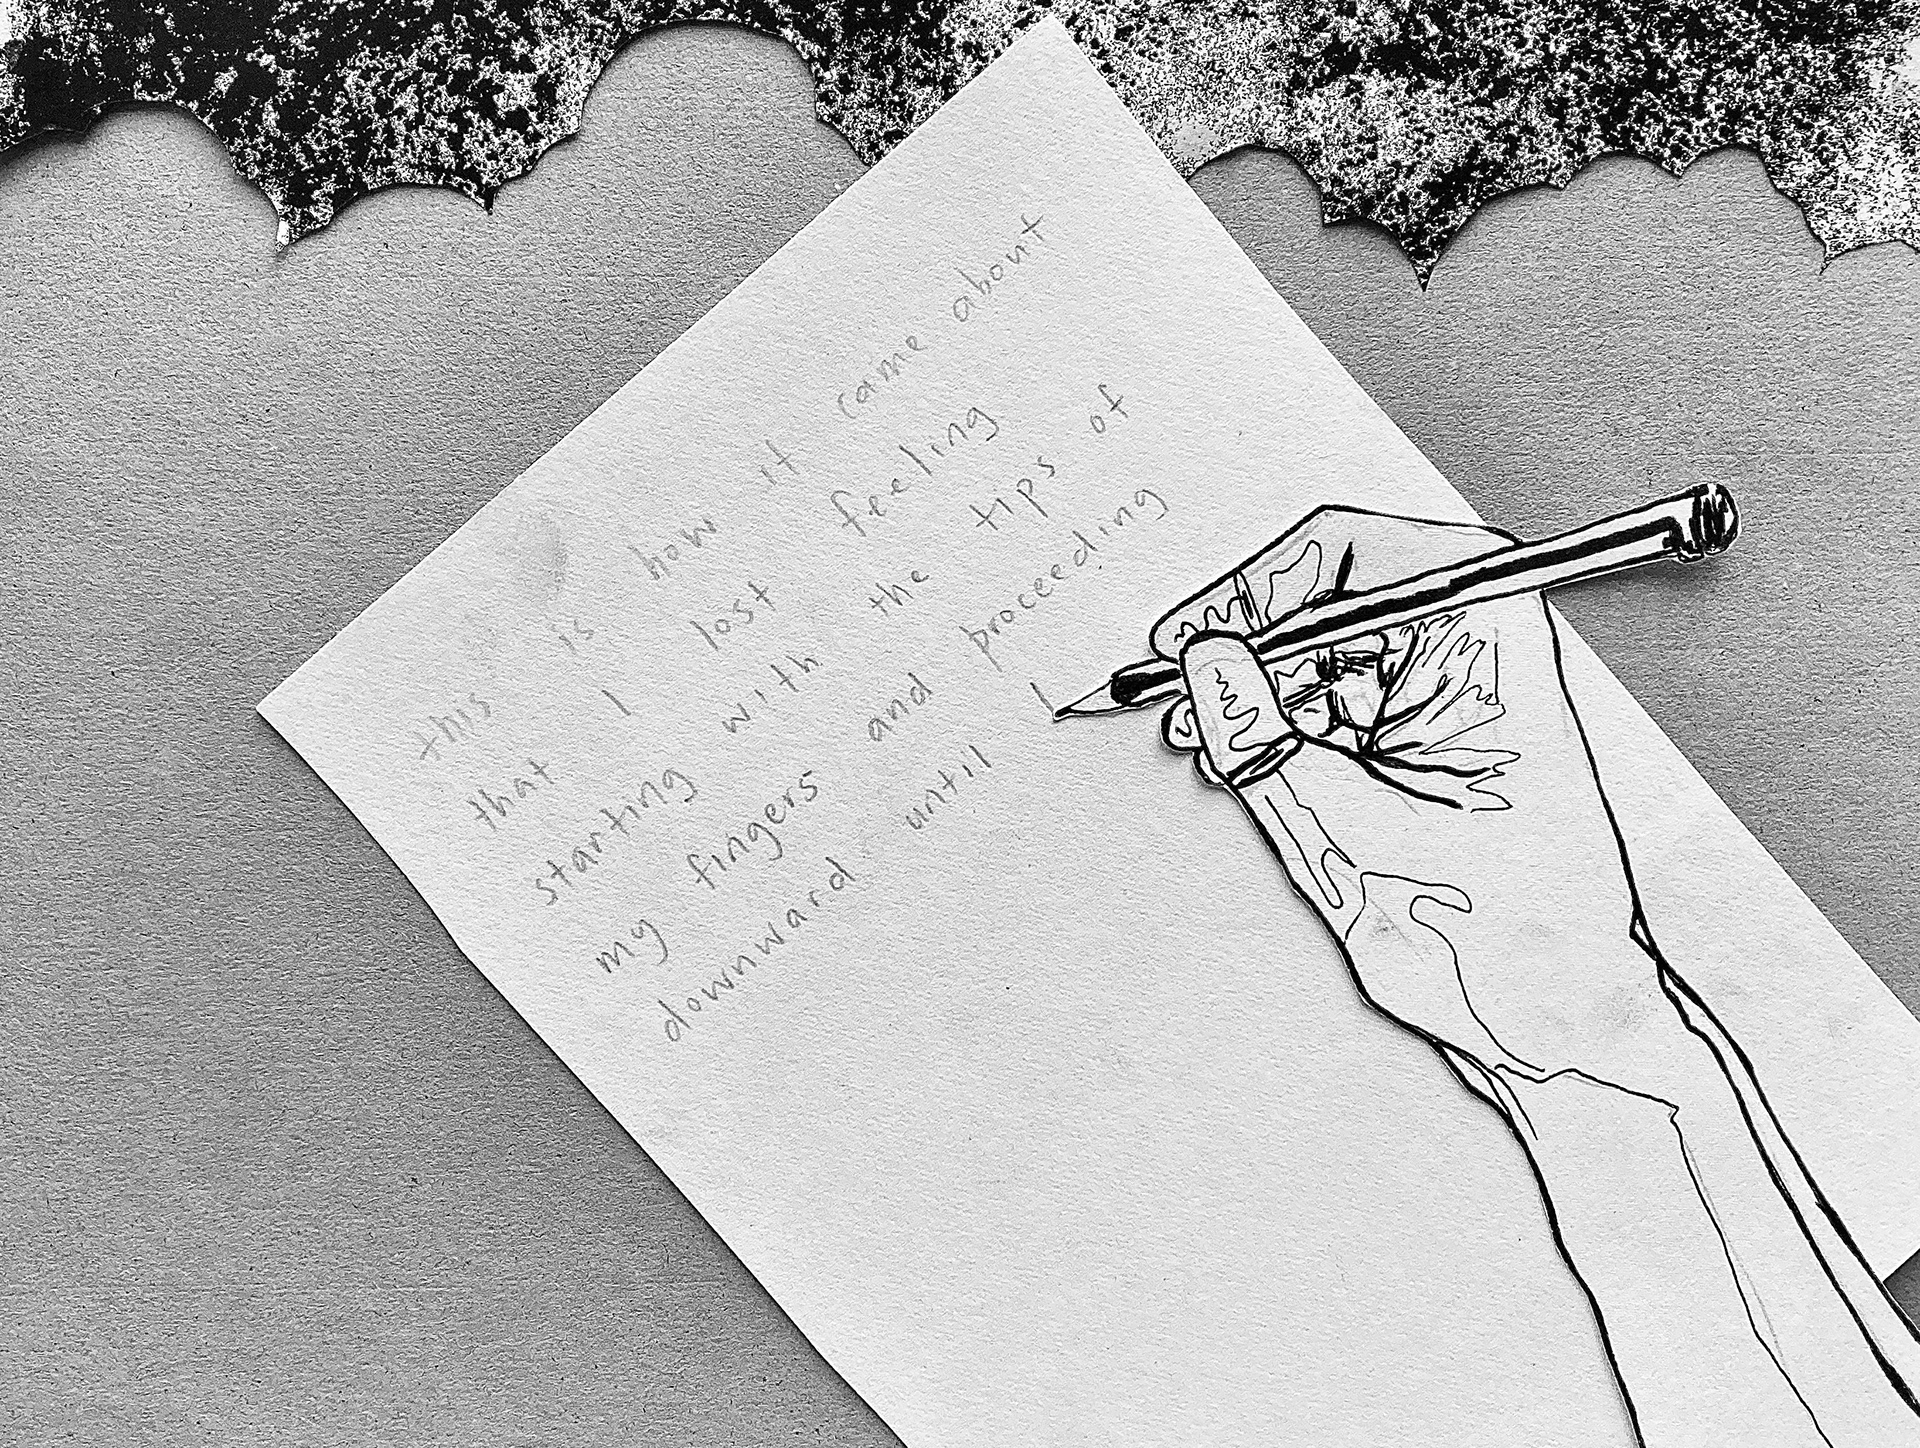 this is how it came about
that I lost feeling
starting with the tips of
my fingers and proceeding
downward until